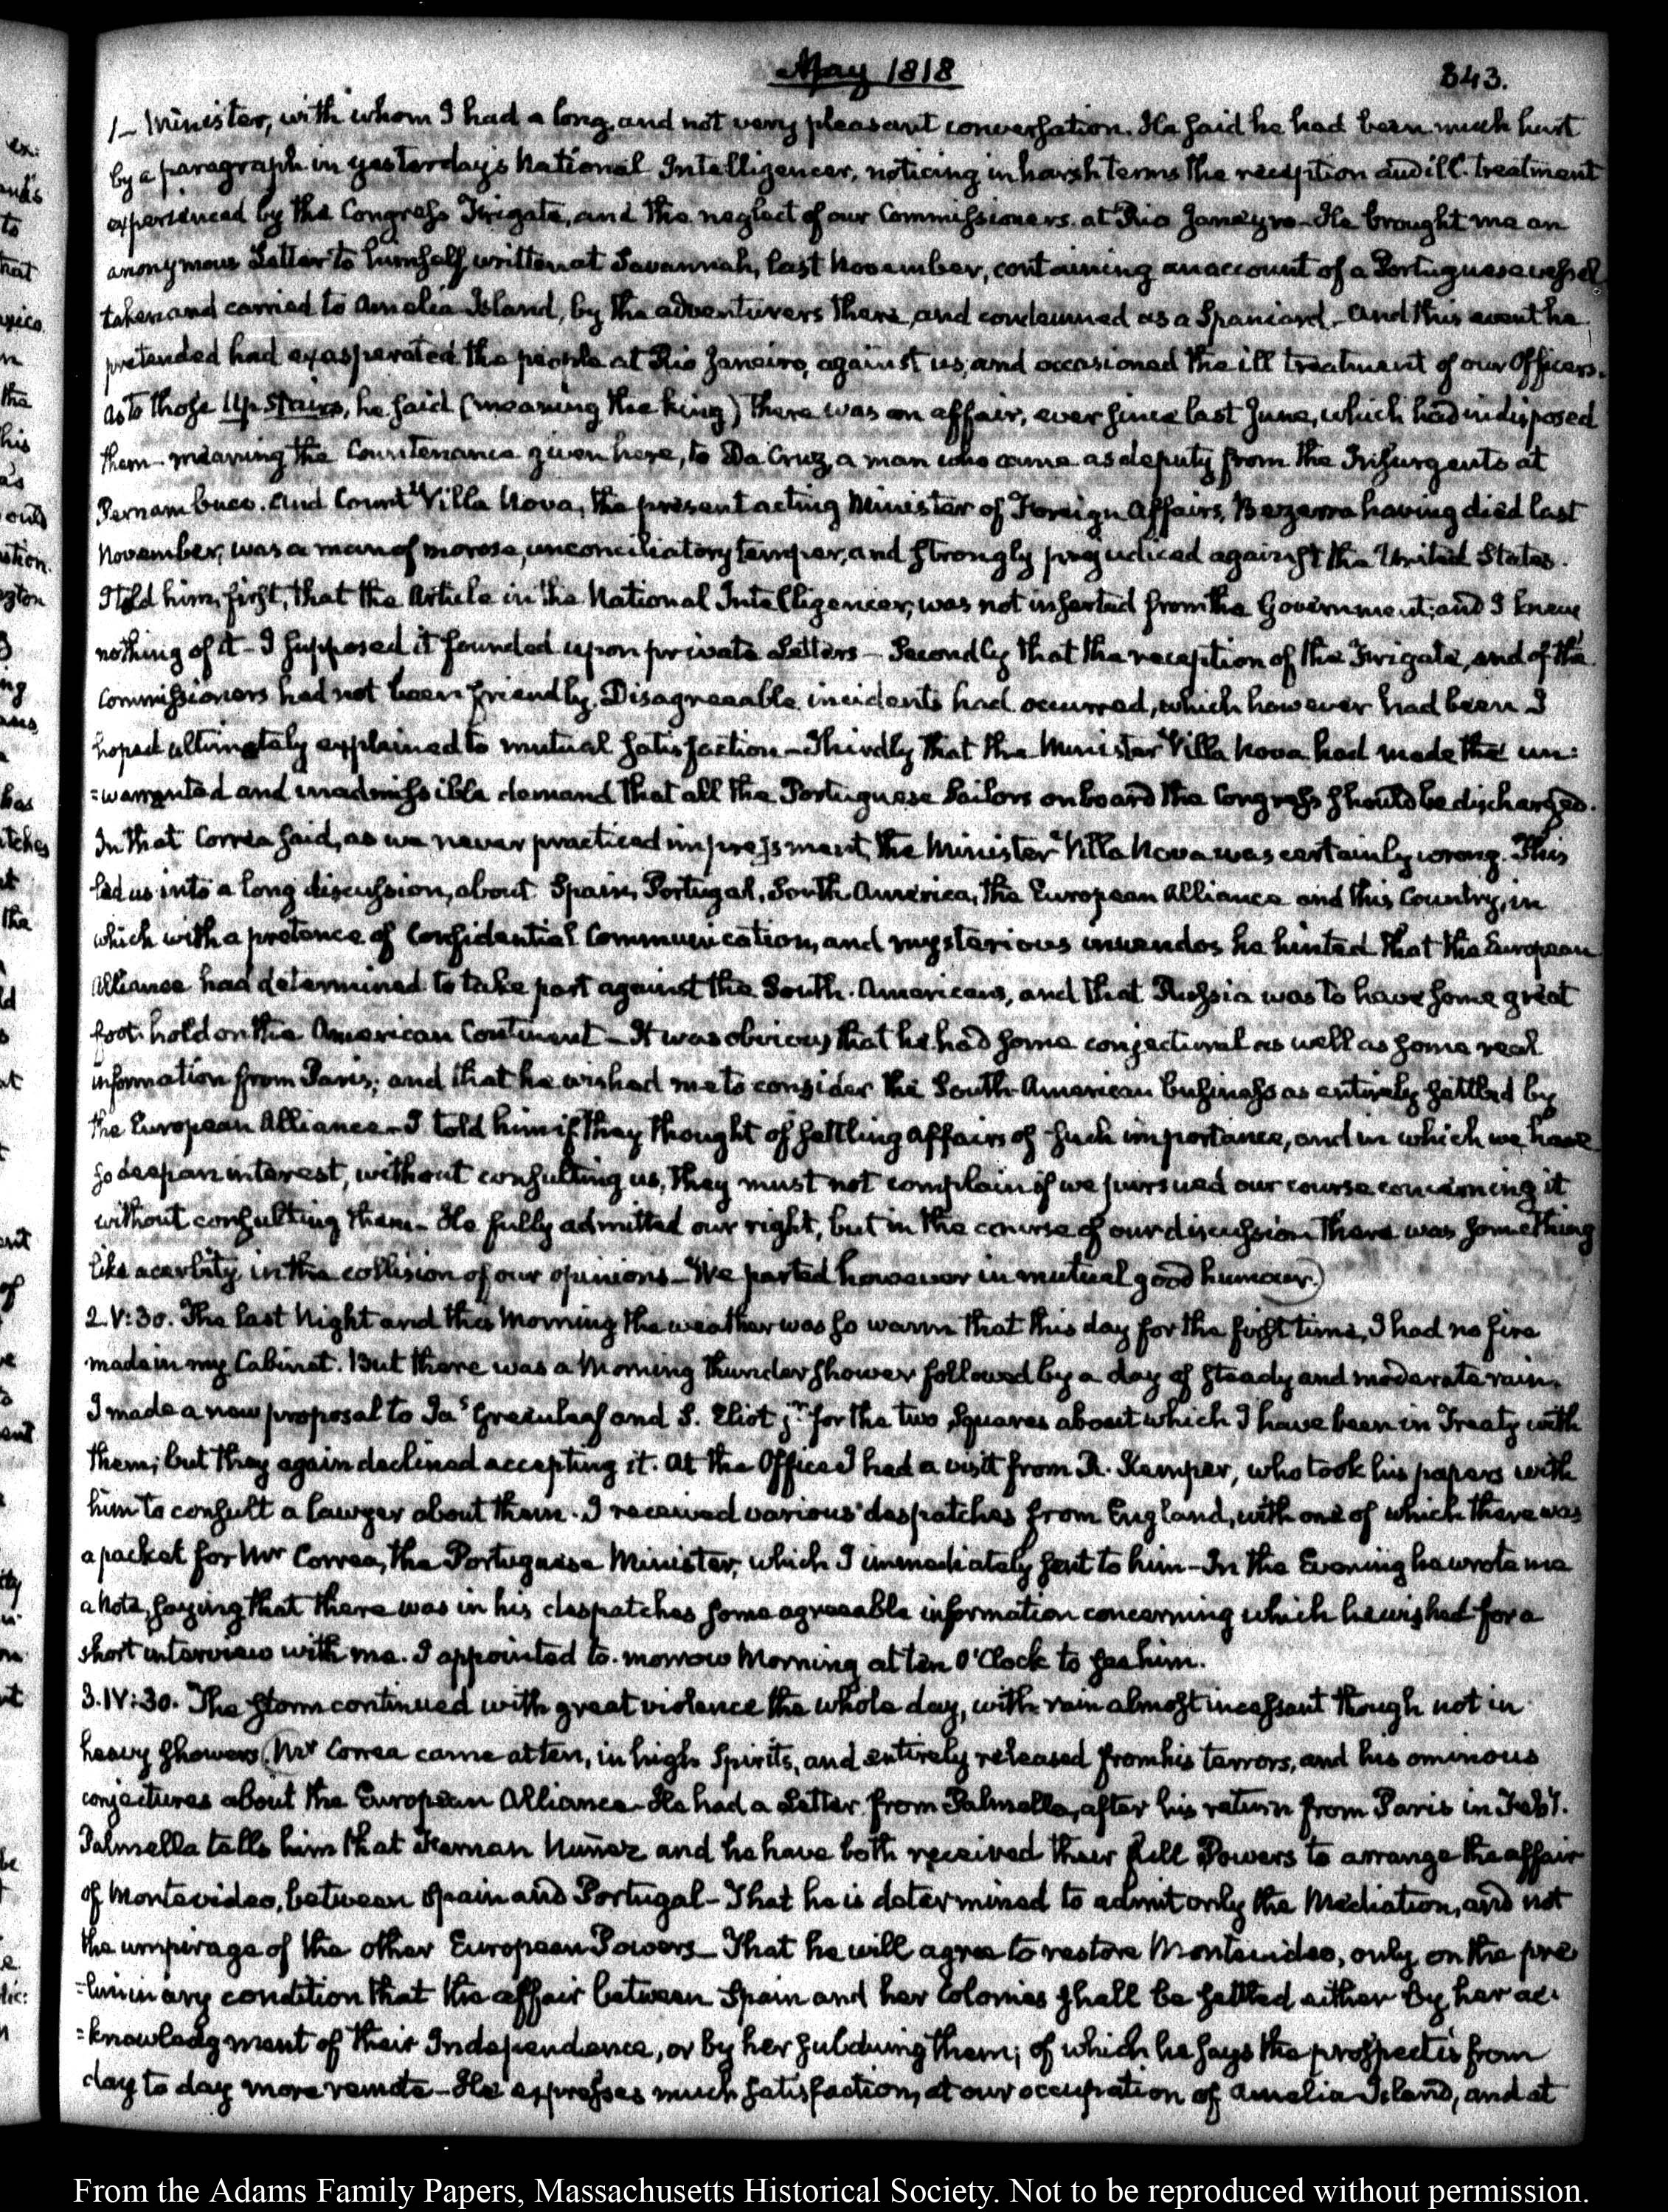 May 1818
343.
1— Minister, with whom I had a long, and not very pleasant conversation. He said he had been much hurt
by a paragraph in yesterday's National Intelligencer, noticing in harsh terms the reception and ill-treatment
experienced by the Congress Frigate, and the neglect of our Commissioners at Rio Janeyro— He brought me an
anonymous Letter to himself written at Savannah, last November, containing an account of a Portuguese vessel
taken and carried to Amelia Island, by the adventurers there, and condemned as a Spaniard— And this event he
pretended had exasperated the people at Rio Janeiro, against us, and occasioned the ill treatment of our Officers.
As to those Up Stairs, he said (meaning the king) there was an affair, ever since last June, which had indisposed
them— meaning the Countenance given here, to Da Cruz, a man who came as deputy from the Insurgents at
Pernambuco. And Count Villa Nova, the present acting Minister of Foreign Affairs, Bezerra having died last
November, was a man of morose, unconciliatory temper, and strongly prejudiced against the United States.
I told him, first, that the Article in the National Intelligencer, was not inserted from the Government; and I knew
nothing of it— I supposed it founded upon private Letters— Secondly that the reception of the Frigate, and of the
Commissioners had not been friendly. Disagreeable incidents had occurred, which however had been I
hoped ultimately explained to mutual satisfaction— Thirdly that the Minister Villa Nova had made the un:
=warranted and inadmissible demand that all the Portuguese Sailors on board the Congress should be discharged.
In that Correa said, as we never practiced impressment, the Minister Villa Nova was certainly wrong. This
led us into a long discussion, about Spain, Portugal, South America, the European Alliance and this Country, in
which with a pretence of Confidential Communication, and mysterious inuendos he hinted that the European
Alliance had determined to take part against the South-Americans, and that Russia was to have some great
foot-hold on the American Continent— It was obvious that he had some conjectural as well as some real
information from Paris; and that he wished me to consider the South-American business as entirely settled by
the European Alliance— I told him if they thought of settling affairs of such importance, and in which we have
so deep an interest, without consulting us, they must not complain if we pursued our course concerning it
without consulting them— He fully admitted our right, but in the course of our discussion there was something
like acerbity in the collision of our opinions— We parted however in mutual good humour.)
2. V:30. The last Night and this Morning the weather was so warm that this day for the first time, I had no fire
made in my Cabinet. But there was a Morning thunder shower followed by a day of steady and moderate rain.
I made a new proposal to Jas Greenleaf and S. Eliot jr for the two Squares about which I have been in Treaty with
them; but they again declined accepting it. At the Office I had a visit from R. Kemper, who took his papers with
him to consult a lawyer about them. I received various despatches from England, with one of which there was
a packet for Mr Correa, the Portuguese Minister, which I immediately sent to him— In the Evening he wrote me
a Note, saying that there was in his despatches some agreeable information concerning which he wished for a
short interview with me. I appointed to-morrow Morning at ten O'Clock to see him.
3. IV:30. The storm continued with great violence the whole day, with rain almost incessant though not in
heavy showers. (Mr Correa came at ten, in high Spirits, and entirely released from his terrors, and his ominous
conjectures about the European Alliance— He had a Letter from Palmella, after his return from Paris in Feby.
Palmella tells him that Fernan Nuñez and he have both received their full Powers to arrange the affair
of Montevideo, between Spain and Portugal— That he is determined to admit only the Mediation, and not
the umpirage of the other European Powers— That he will agree to restore Montevideo, only on the pre
=liminary condition that the affair between Spain and her Colonies shall be settled either by her ac:
=knowledgment of their Independence, or by her subduing them; of which he says the prospect is from
day to day more remote— He expresses much satisfaction, at our occupation of Amelia Island, and at
From the Adams Family Papers, Massachusetts Historical Society. Not to be reproduced without permission.